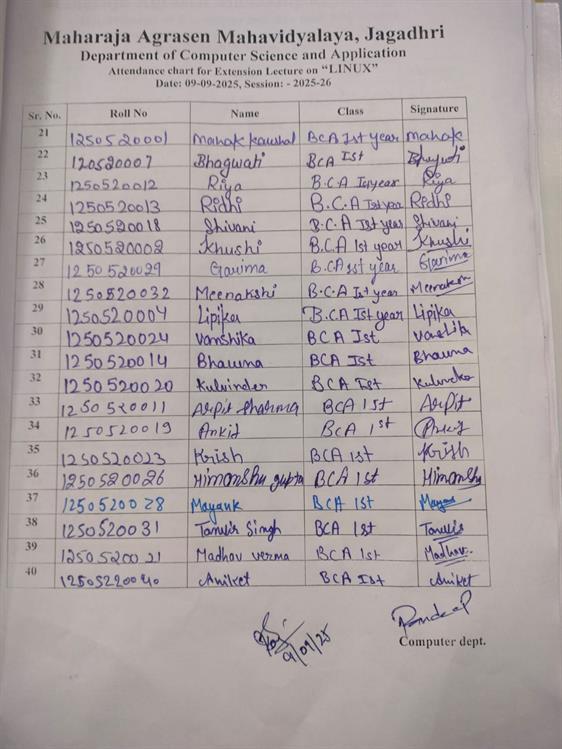 Maharaja Agrasen Mahavidyalaya, Jagadhri
Department of Computer Science and Application
Attendance chart for Extension Lecture on "LINUX"
Date: 09-09-2025, Session: - 2025-26
Sr. No. Roll No Name Class Signature
21 1250520001 Mahak Kaushal BCA Ist year Mahak
22 120520007 Bhagwati BCA Ist Bhagwati
23 1250520012 Riya B.C.A Ist year Riya
24 1250520013 Ridhi B.C.A Ist year Ridhi
25 1250520018 Shivani B.C.A Ist year Shivani
26 1250520002 Khushi B.C.A 1st year Khushi
27 1250520029 Garima B.CA 1st year Garima
28 1250520032 Meenakshi B.C.A Ist year Meenakshi
29 1250520004 Lipika B.C.A Ist year Lipika
30 1250520024 Vanshika BCA Ist Vanshika
31 1250520014 Bhawna BCA Ist Bhawna
32 1250520020 Kulvinder BCA Ist Kulvinder
33 1250520011 Arpit Sharma BCA 1st Arpit
34 1250520019 Ankit BCA 1st Ankit
35 1250520023 Krish BCA 1st Krish
36 1250520026 Himanshu gupta BCA 1st Himanshu
37 1250520028 Mayank BCA 1st Mayank
38 1250520031 Tanvir Singh BCA 1st Tanvir
39 1250520021 Madhav verma BCA 1st Madhav.
40 1250522040 Aniket BCA Ist Aniket
9/09/25
Computer dept.